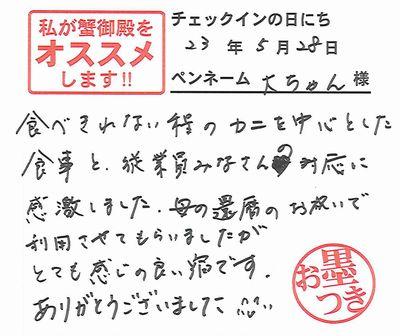 私が蟹御殿を
オススメ
します!!
チェックインの日にち
23年5月28日
ペンネーム 大ちゃん 様
食べきれない程のカニを中心とした
食事と、従業員みなさんの対応に
感激しました。母の還暦のお祝いで
利用させてもらいましたが
とても感じの良い宿です。
ありがとうございました
お墨つき